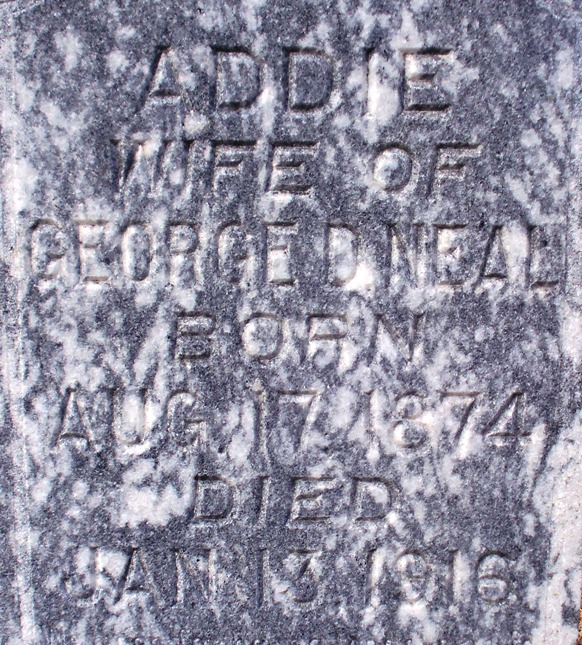 ADDIE
WIFE OF
GEORGE D. NEAL
BORN
AUG. 17, 1874
DIED
JAN. 13, 1916